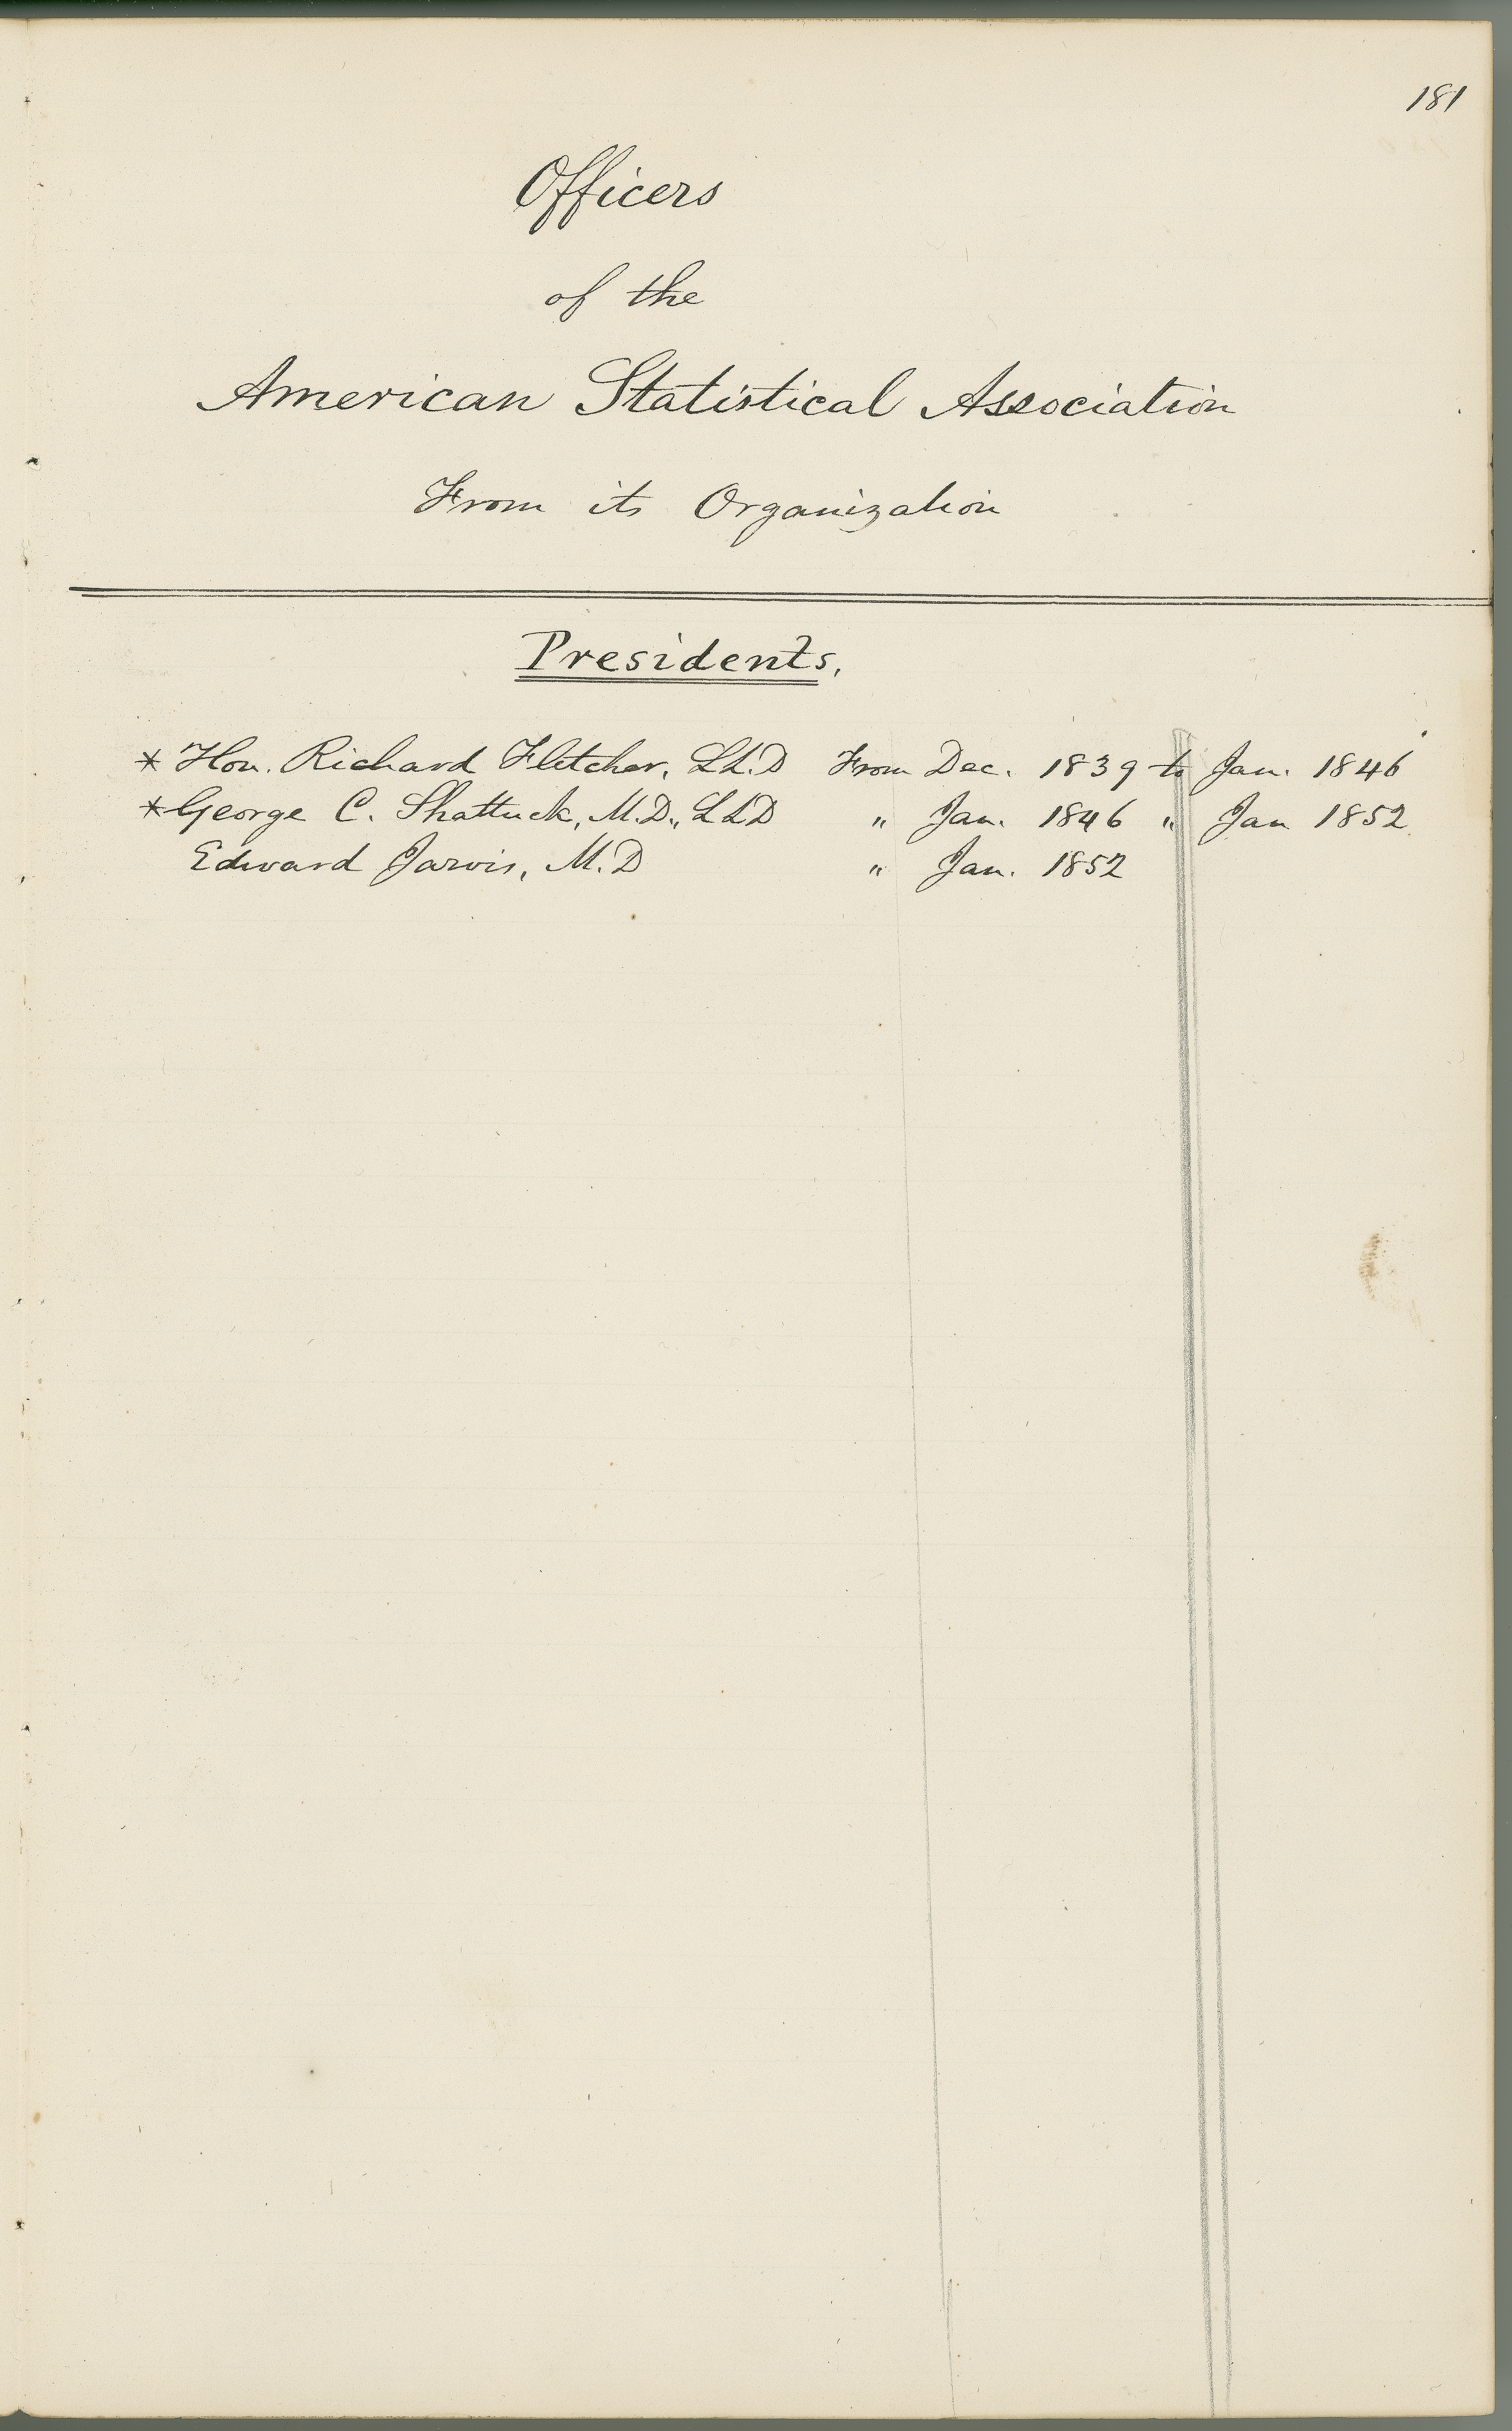 181
Officers
of the
American Statistical Association
From its Organization
Presidents.
* Hon. Richard Fletcher, LL.D From Dec. 1839 to Jan. 1846
* George C. Shattuck, M.D., LLD " Jan. 1846 " Jan 1852
Edward Jarvis, M.D " Jan. 1852